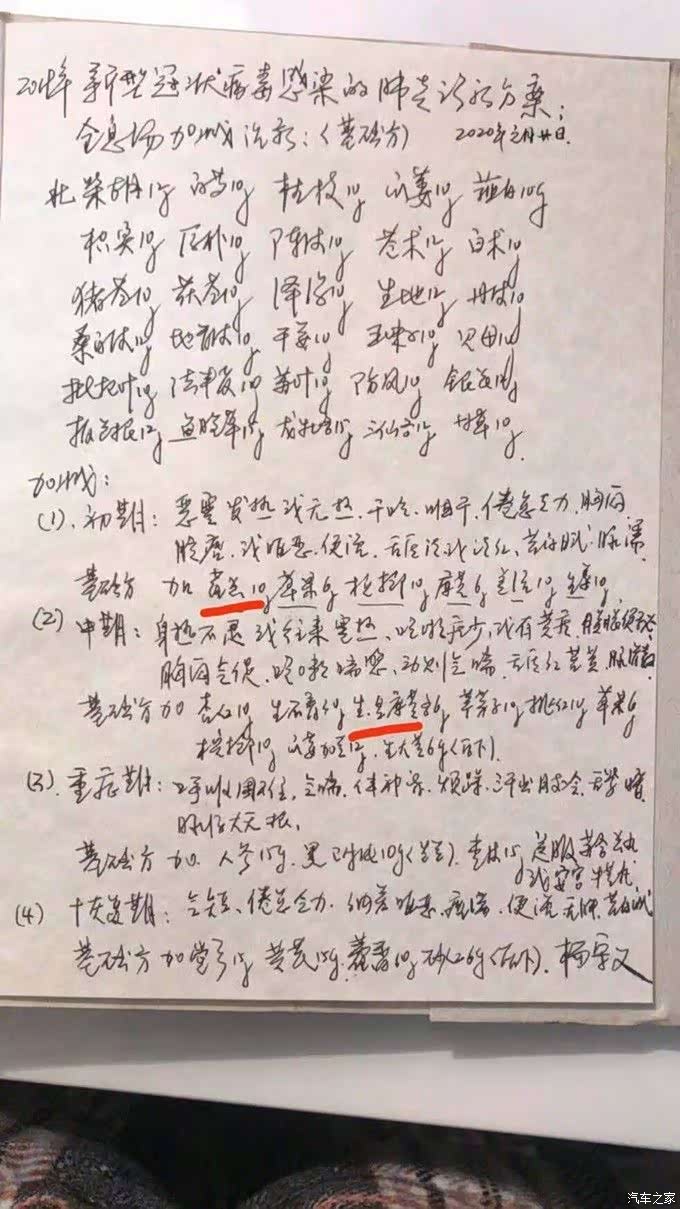 2019年新型冠状病毒感染的肺炎诊疗方案:
全息场加减治疗:(基础方) 2020年元月廿日.
北柴胡12g 白芍10g 桂枝10g 10g 薤白10g
枳实10g 厚朴10g 陈皮10g 苍术12g 白术10g
猪苓10g 茯苓10g 泽泻10g 生地12g 丹皮10g
桑白皮10g 地骨皮10g 干姜10g 五味子10g 贝母10g
枇杷叶10g 法半夏10g 10g 防风10g 银花10g
板兰根12g 鱼腥草15g 15g 12g 甘草10g
加减:
(1).初期: 恶寒发热或无热.干咳.咽干.倦怠乏力.胸闷
脘痞.或呕恶.便溏.舌质淡或淡红、苔白腻.脉濡.
基础方 加 10g 草果6g 槟榔10g 麻黄6g 羌活10g 生姜10g
(2) 中期: 身热不退或往来寒热、咳嗽痰少、或有黄痰、腹胀便秘
胸闷气促、咳嗽喘憋、动则气喘、舌质红苔黄、脉滑数.
基础方加 杏仁10g 生石膏 生麻黄6g 葶苈子10g 桃仁10g 草果6g
槟榔10g 生大黄6g(后下).
(3).重症期: 呼吸困难、气喘、神昏、烦躁、汗出肢冷、舌紫暗
脉浮大无根.
基础方 加. 人参15g. 黑附片10g(先煎). 送服苏合香丸
或安宫牛黄丸.
(4) 恢复期: 气短、倦怠乏力. 纳差呕恶、痞满、便溏无 苔白腻
基础方 加党参15g 黄芪15g. 藿香10g 砂仁6g(后下).
汽车之家